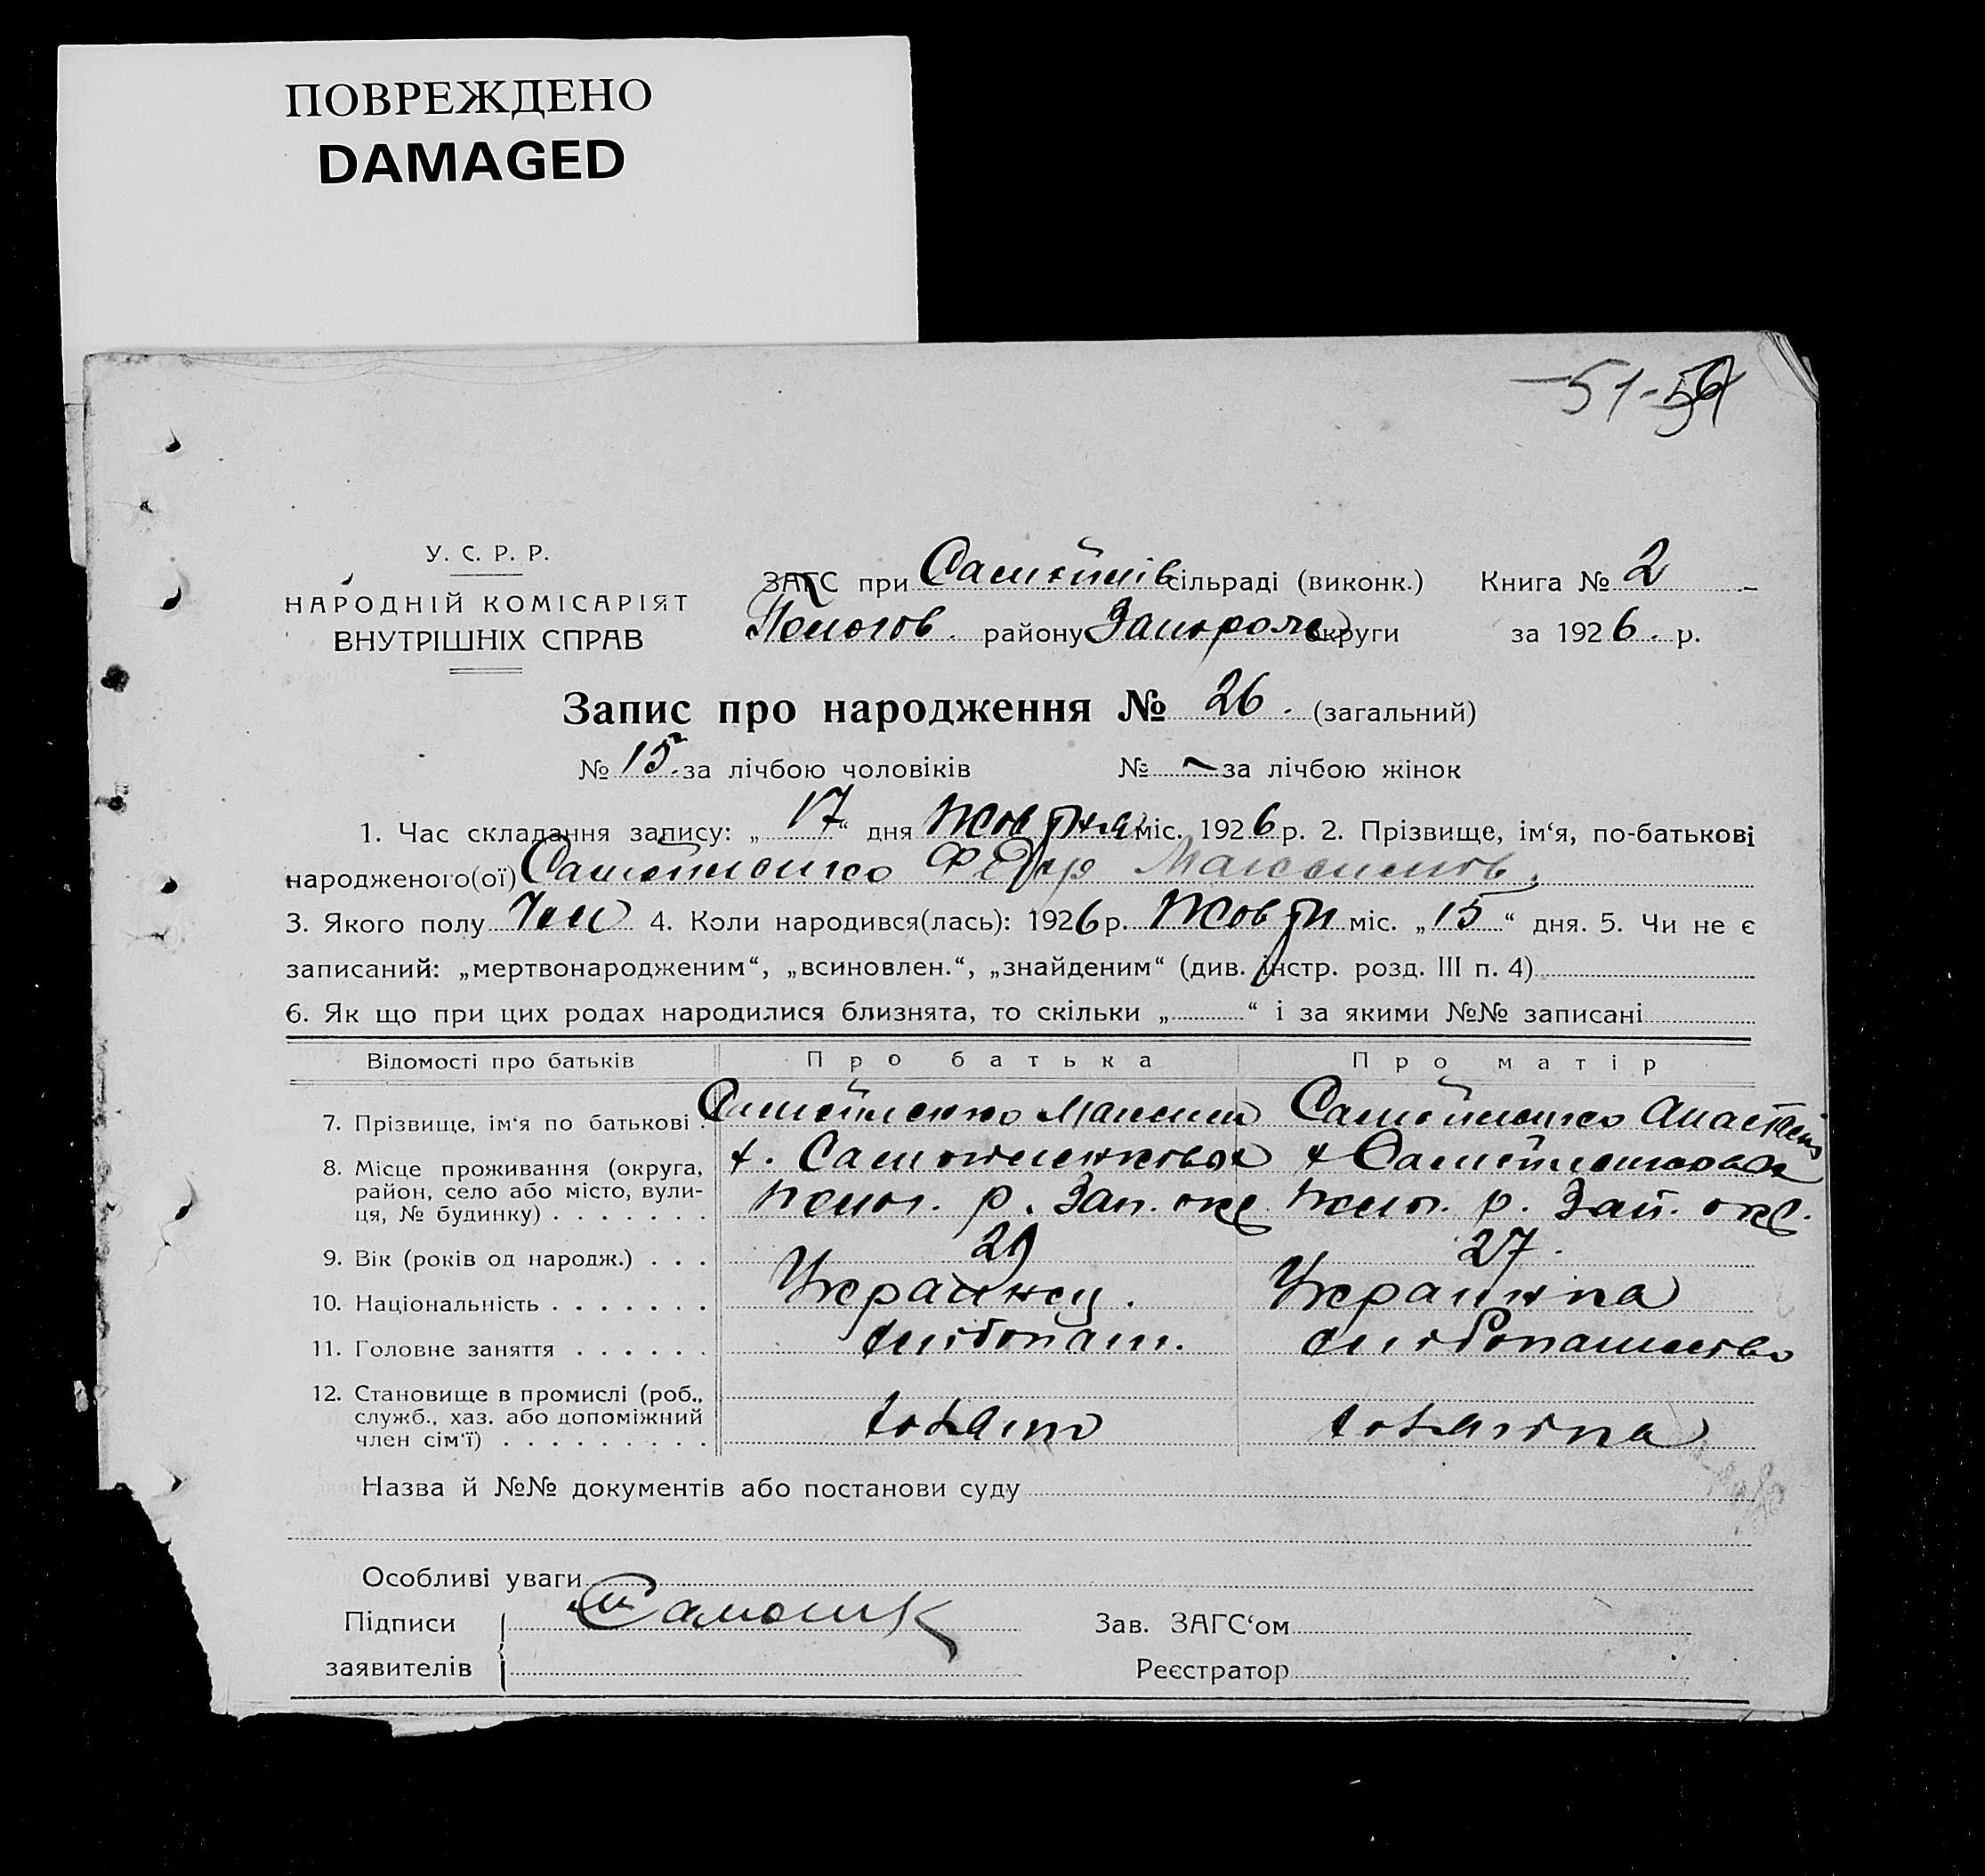 ПОВРЕЖДЕНО
DAMAGED
51-
У. С. Р. Р.
НАРОДНІЙ КОМІСАРІЯТ
ВНУТРІШНІХ СПРАВ
ЗАГС при сільраді (виконк.) Книга № 2
Пологов. району Запорож округи за 1926. р.
Запис про народження № 26. (загальний)
№ 15 за лічбою чоловіків № — за лічбою жінок
1. Час складання запису: „17“ дня Жовтня міс. 1926 р. 2. Прізвище, ім‘я, по-батькові
народженого(ої) Самойленко Федір Максимов.
3. Якого полу Чол 4. Коли народився(лась): 1926 р. Жовтн міс. „15“ дня. 5. Чи не є
записаний: „мертвонародженим“, „всиновлен.“, „знайденим“ (див. інстр. розд. III п. 4)
6. Як що при цих родах народилися близнята, то скільки „ “ і за якими №№ записані
Відомості про батьків Про батька Про матір
7. Прізвище, ім‘я по батькові . Самойленко Максим Самойленко Анастасія
8. Місце проживання (округа, х. х
район, село або місто, вули-
ця, № будинку) . . . . . . . Полог. р. Зап. окр. Полог. р. Зап. окр.
9. Вік (років од народж.) . . . 29 27.
10. Національність . . . . . . . Українец. Українка
11. Головне заняття . . . . . . хліборап. хлібопашество
12. Становище в промислі (роб.,
служб., хаз. або допоміжний хозяин хозяйка
член сім‘ї) . . . . . . . . .
Назва й №№ документів або постанови суду
Особливі уваги
Підписи
заявителів
Зав. ЗАГС‘ом
Реєстратор